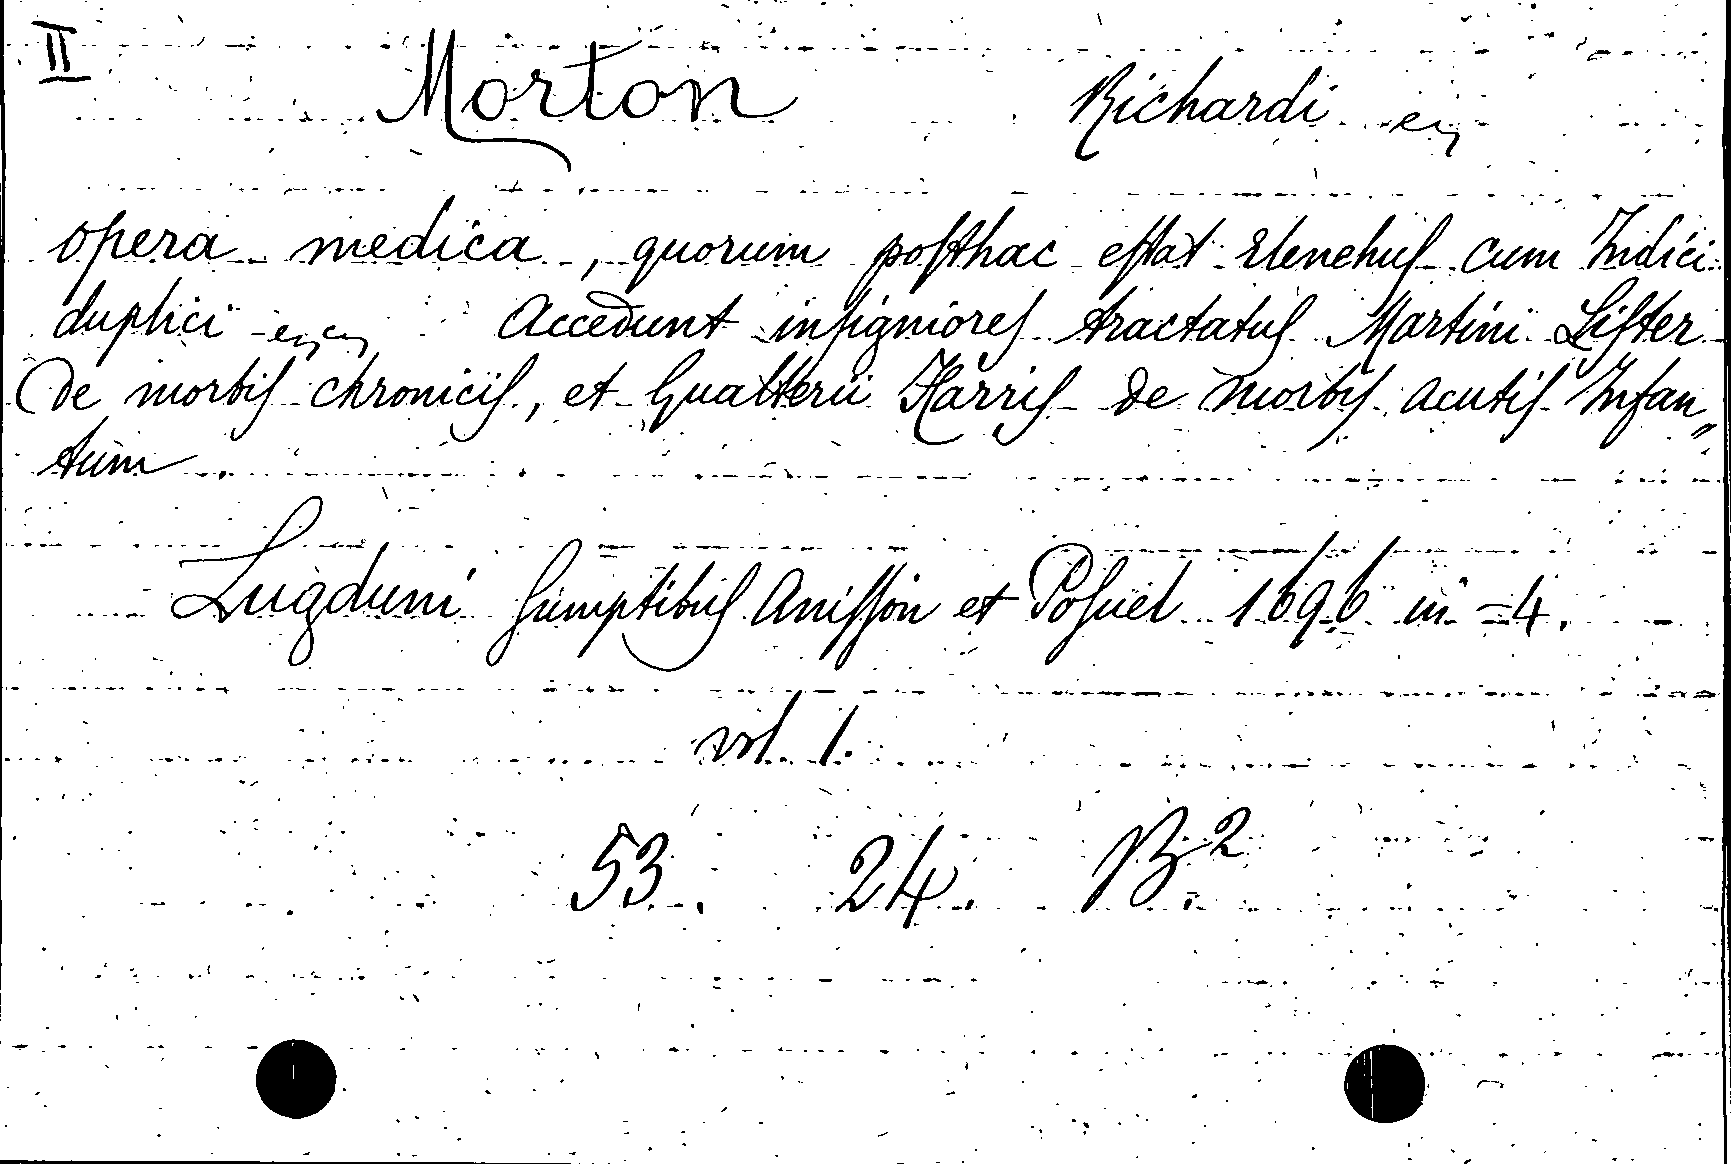 II
Morton Richardi
opera medica, quorum posthac estat Elenchus cum Indici
duplici Accedunt insigniores tractatus Martini Lister
de morbis chronicis, et Gualterii Harris de morbis acutis Infan„
tum
Lugduni sumptibus Anisson et Posuel 1696 in-4.
vol. 1.
53. 24. B.2